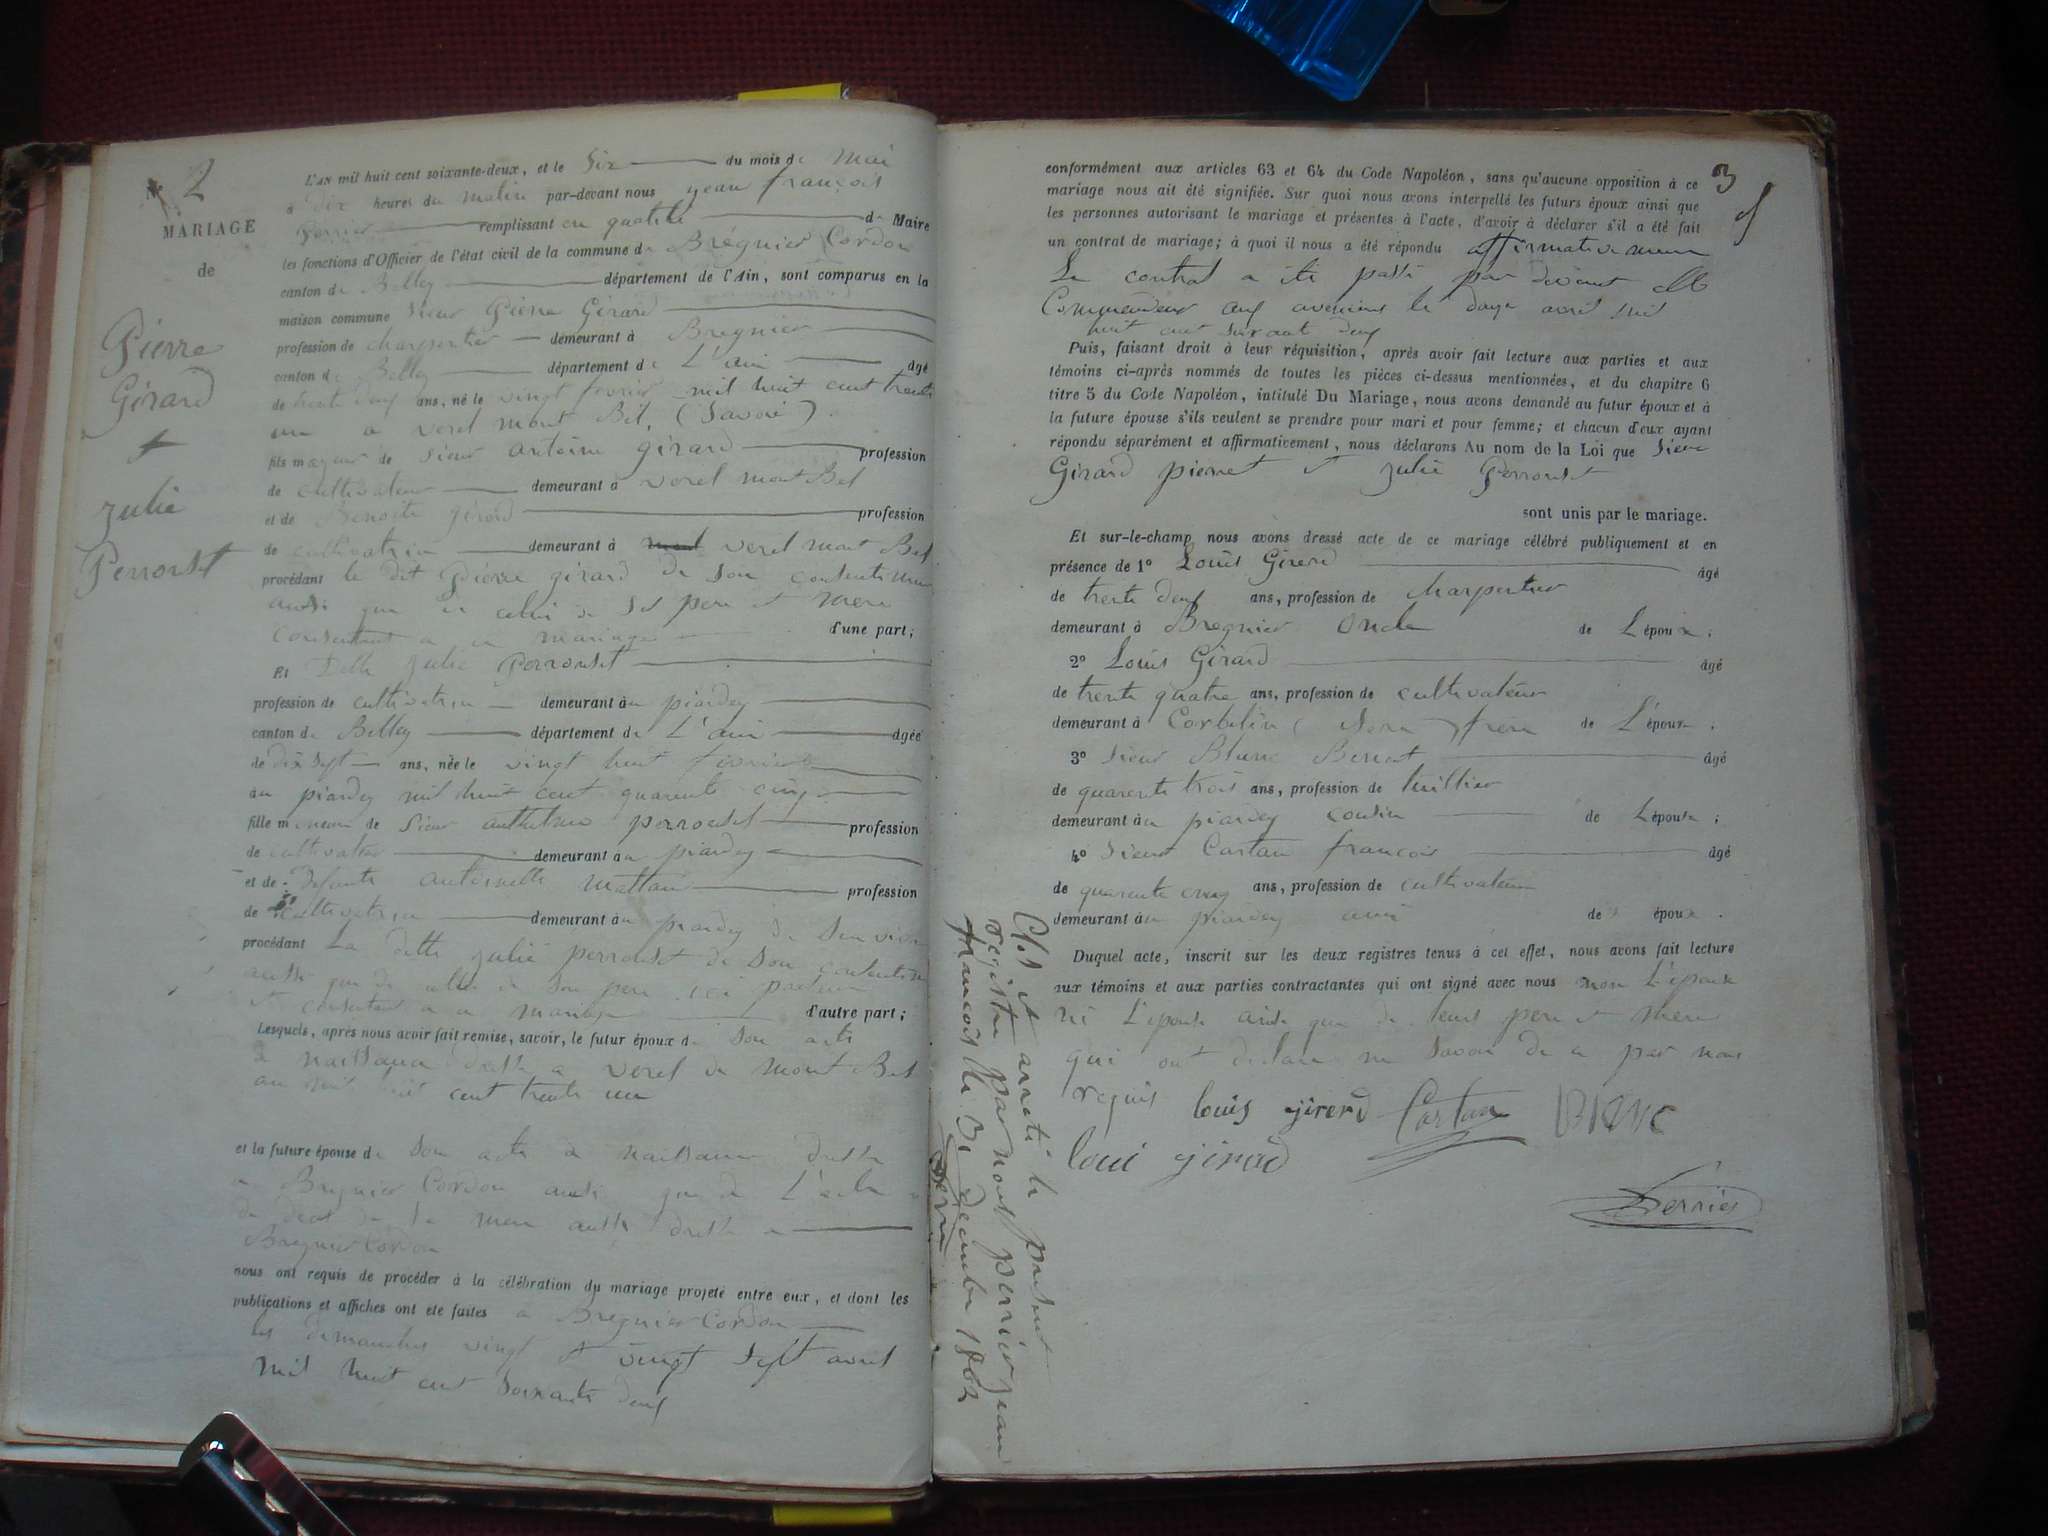 N° 2
MARIAGE
de
Pierre
Girard
et
Julie
Perrouset
L'AN mil huit cent soixante-deux, et le Six du mois de Mai
à dix heures du matin par-devant nous jean françois
Perrier remplissant en qualité de Maire
les fonctions d'Officier de l'état civil de la commune de Brégnier Cordon
canton de Belley département de l'Ain, sont comparus en la
maison commune Sieur Pierre Girard
profession de charpentier demeurant à Bregnier
canton de Belley département de L'ain âgé
de trente deux ans, né le vingt fevrier mil huit cent trente
un a verel mont Bel, (Savoie)
fils mageur de Sieur antoine girard profession
de cultivateur demeurant à verel mont Bel
et de Benoite girard profession
de cultivatrice demeurant à verel mont Bel
procédant le dit Pierre girard de Son consentement
aussi que de celui de Ses pere et mere
consentant a ce mariage d'une part;
Et Delle Julie Perrouset
profession de cultivatrice demeurant àu piardey
canton de Belley département de L'ain âgée
de dix Sept ans, née le vingt huit fevrier
au piardey mil huit cent quarente cinq
fille mineure de Sieur anthelme perrouset profession
de cultivateur demeurant àu piardey
et de Defunte antoinette profession
de cultivatrice demeurant àu piardey de Son vivan
procédant La dette Julie perrouset de Son consentem
aussi que de celle de Son pere ici
et consentant a ce mariage d'autre part;
Lesquels, après nous avoir fait remise, savoir, le futur époux de Son acte
de naissance a verel de mont Bel
an mil huit cent trente un
et la future épouse de Son acte de naissance
a Bregnier Cordon aussi que de L'acte
de de Sa mere aussi a
Bregnier Cordon
nous ont requis de procéder à la célébration du mariage projeté entre eux, et dont les
publications et affiches ont été faites a Bregnier Cordon
les dimanches vingt et vingt Sept avril
mil huit cent Soixante deux
3
conformément aux articles 63 et 64 du Code Napoléon, sans qu'aucune opposition à ce
mariage nous ait été signifiée. Sur quoi nous avons interpellé les futurs époux ainsi que
les personnes autorisant le mariage et présentes à l'acte, d'avoir à déclarer s'il a été fait
un contrat de mariage; à quoi il nous a été répondu affirmativement
Le contrat a ete passé par devant
aux avenieres le avril mil
huit cent soixante deux
Puis, faisant droit à leur réquisition, après avoir fait lecture aux parties et aux
témoins ci-après nommés de toutes les pièces ci-dessus mentionnées, et du chapitre 6
titre 5 du Code Napoléon, intitulé Du Mariage, nous avons demandé au futur époux et à
la future épouse s'ils veulent se prendre pour mari et pour femme; et chacun d'eux ayant
répondu séparément et affirmativement, nous déclarons Au nom de la Loi que Sieur
Girard pierre et Julie Perrouset
sont unis par le mariage.
Et sur-le-champ nous avons dressé acte de ce mariage célébré publiquement et en
présence de 1° Louis Girerd âgé
de trente deux ans, profession de charpentier
demeurant à Bregnier oncle de Lépoux;
2° Louis Girard âgé
de trente quatre ans, profession de cultivateur
demeurant à Corbelin (Isere) frere de L'époux.
3° Sieur Blanc Benoit âgé
de quarente trois ans, profession de tuillier
demeurant àu piardey cousin de Lépouse;
4° Sieur Cartan francois âgé
de quarente cinq ans, profession de cultivateur
demeurant àu piardey ami de époux.
Duquel acte, inscrit sur les deux registres tenus à cet effet, nous avons fait lecture
aux témoins et aux parties contractantes qui ont signé avec nous non L'époux
ni L'épouse ainsi que de leurs pere et mere
qui ont declare ne Savoir de ce par nous
requis louis girerd Cartan Blanc
loui girard
Perrier
Clos et arreté le présent
registre par nous perrier jean
francois le 31 decembre 1862
Perrier